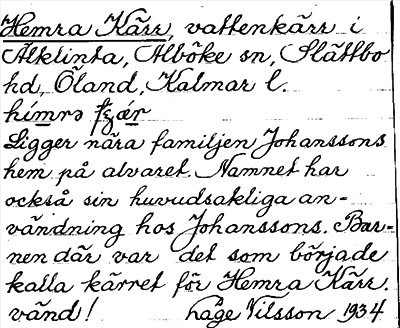 Hemra Kärr, vattenkärr i
Alklinta, Alböke sn, Slättbo
hd, Öland, Kalmar l.
hímrə
Ligger nära familjen Johanssons
hem på alvaret. Namnet har
också sin huvudsakliga an-
vändning hos Johanssons. Bar-
nen där var det som började
kalla kärret för Hemra Kärr.
vänd! Håge Nilsson 1934